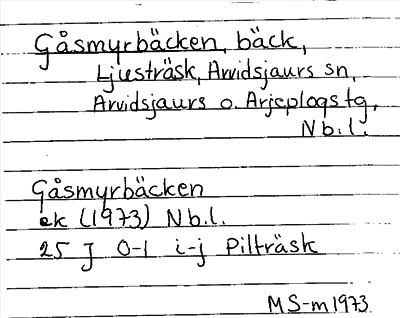 Gåsmyrbäcken, bäck,
Ljusträsk, Arvidsjaurs sn,
Arvidsjaurs o. Arjeplogs tg,
Nb.l.
Gåsmyrbäcken
ek (1973) Nb.l.
25 J 0-1 i-j Pilträsk
MS-m 1973